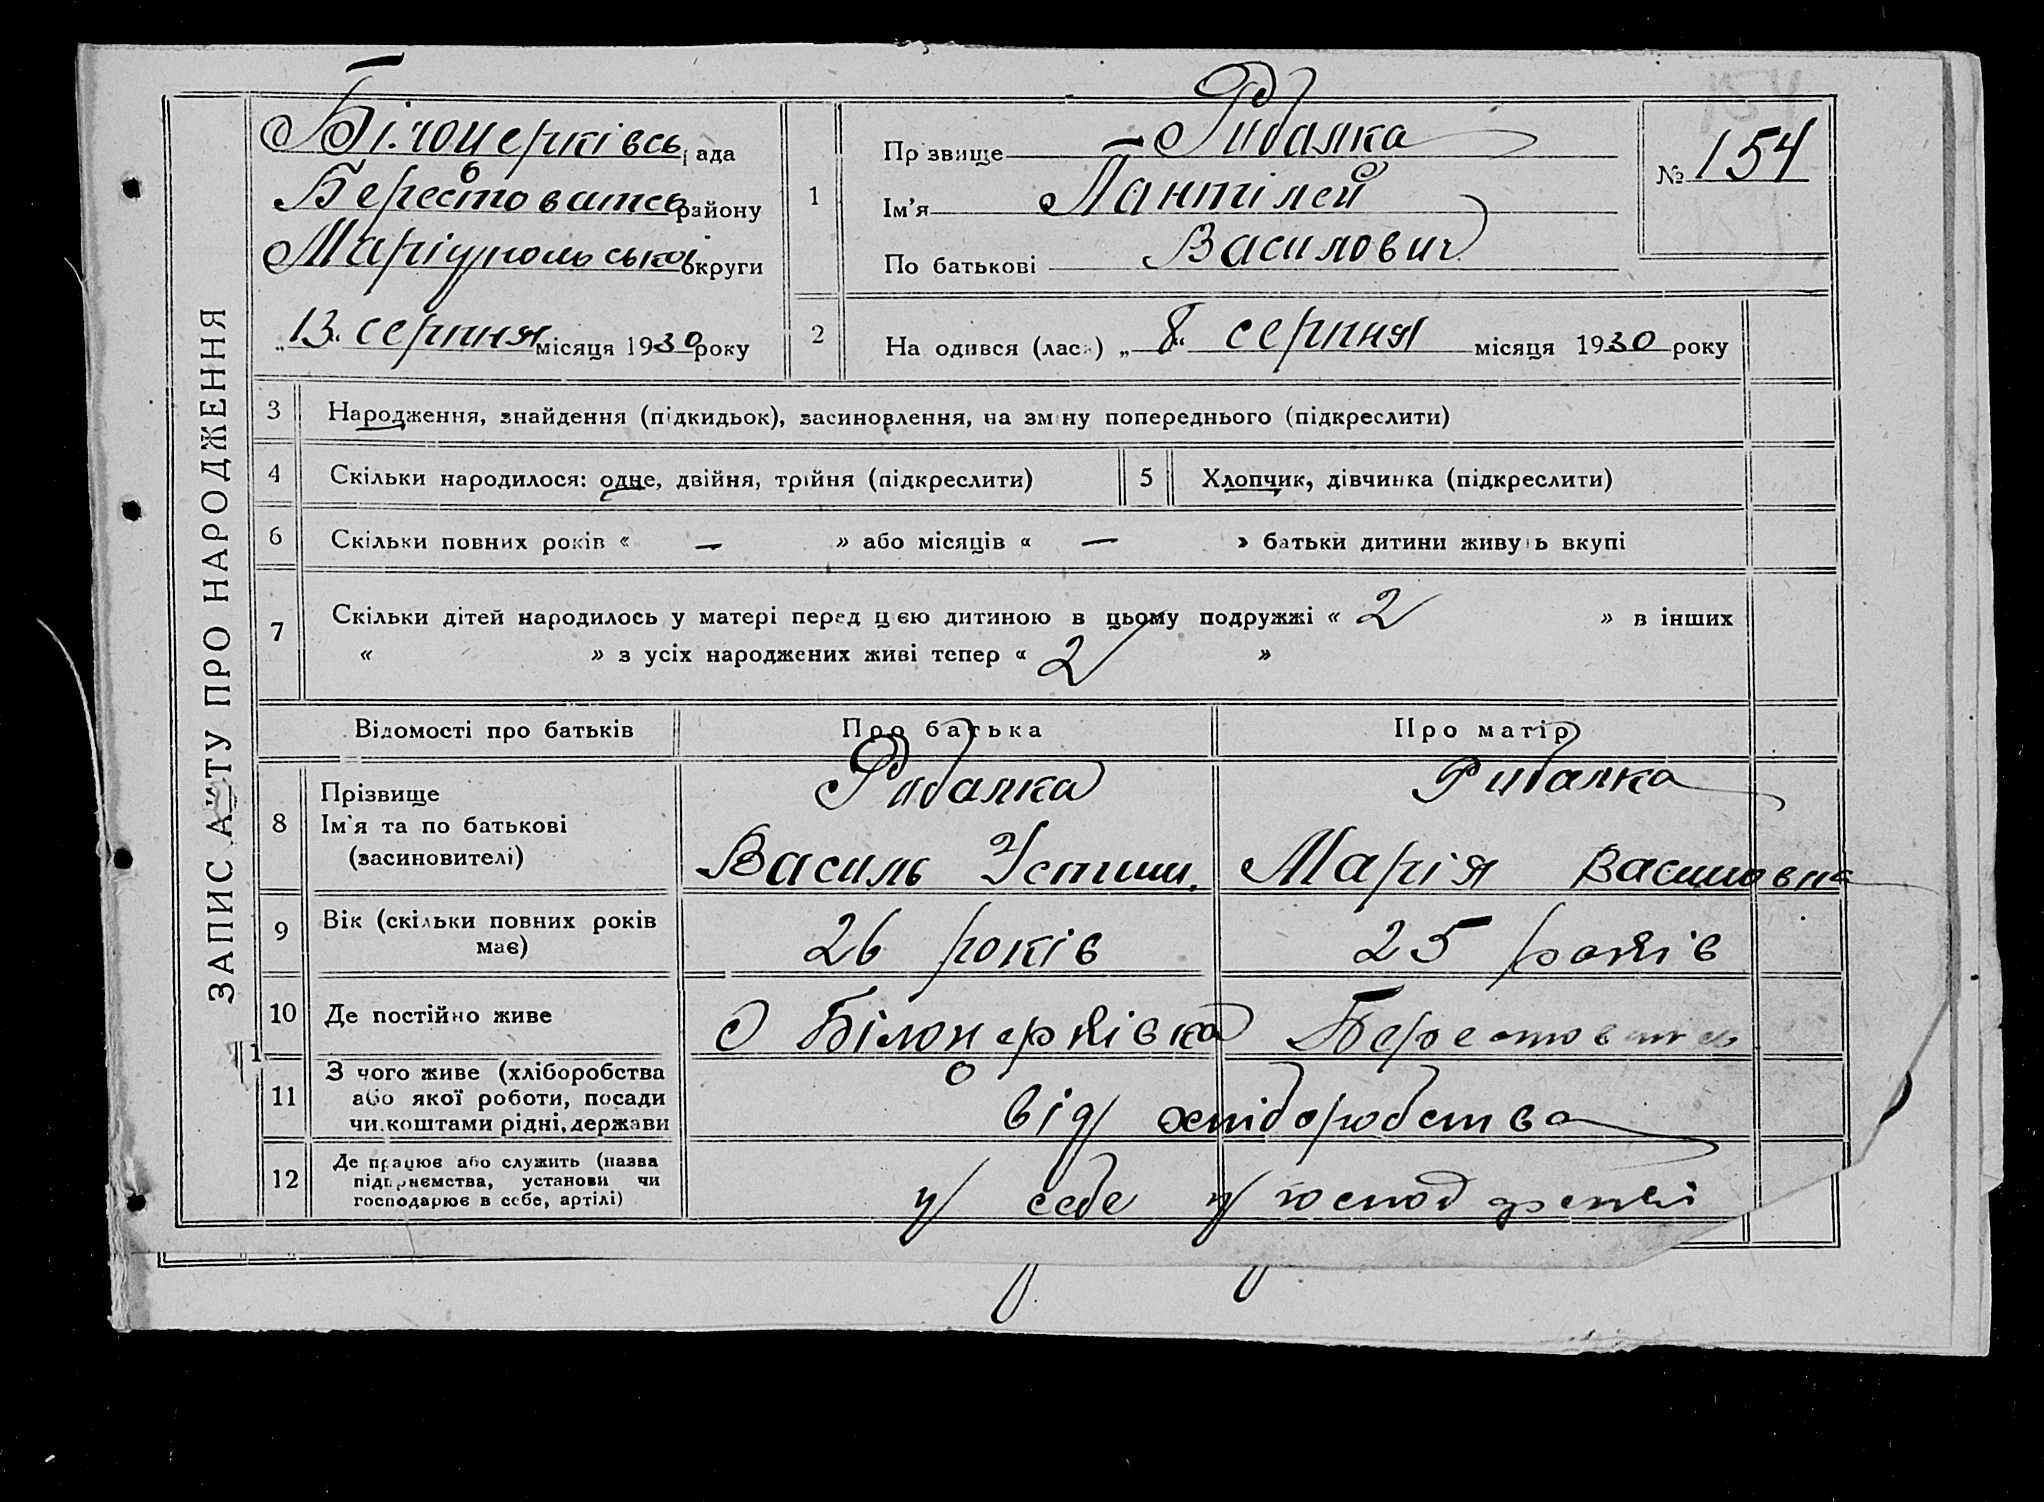 ЗАПИС АКТУ ПРО НАРОДЖЕННЯ
Білоцерківсь рада
Берестоватсь району
Маріупольської округи
„13“ серпня місяця 1930 року
1
Прізвище Рибалка
Ім'я Пантілей
По батькові Василович
№ 154
2
На одився (лась) „8“ серпня місяця 1930 року
3 Народження, знайдення (підкидьок), засиновлення, на зміну попереднього (підкреслити)
4 Скільки народилося: одне, двійня, трійня (підкреслити)
5 Хлопчик, дівчинка (підкреслити)
6 Скільки повних років « — » або місяців « — » батьки дитини живуть вкупі
7 Скільки дітей народилось у матері перед цією дитиною в цьому подружжі « 2 » в інших
« » з усіх народжених живі тепер « 2 »
Відомості про батьків Про батька Про матір
8 Прізвище
Ім'я та по батькові
(засиновителі)
Рибалка
Василь Устим.
Рибалка
Марія Василовна
9 Вік (скільки повних років
має)
26 років
25 років
10 Де постійно живе
с Білоцерківка Берестоватсь
11 З чого живе (хліборобства
або якої роботи, посади
чи коштами рідні, держави
від хліборобства
12 Де працює або служить (назва
підприємства, установи чи
господарює в себе, артілі)
у себе у господарстві